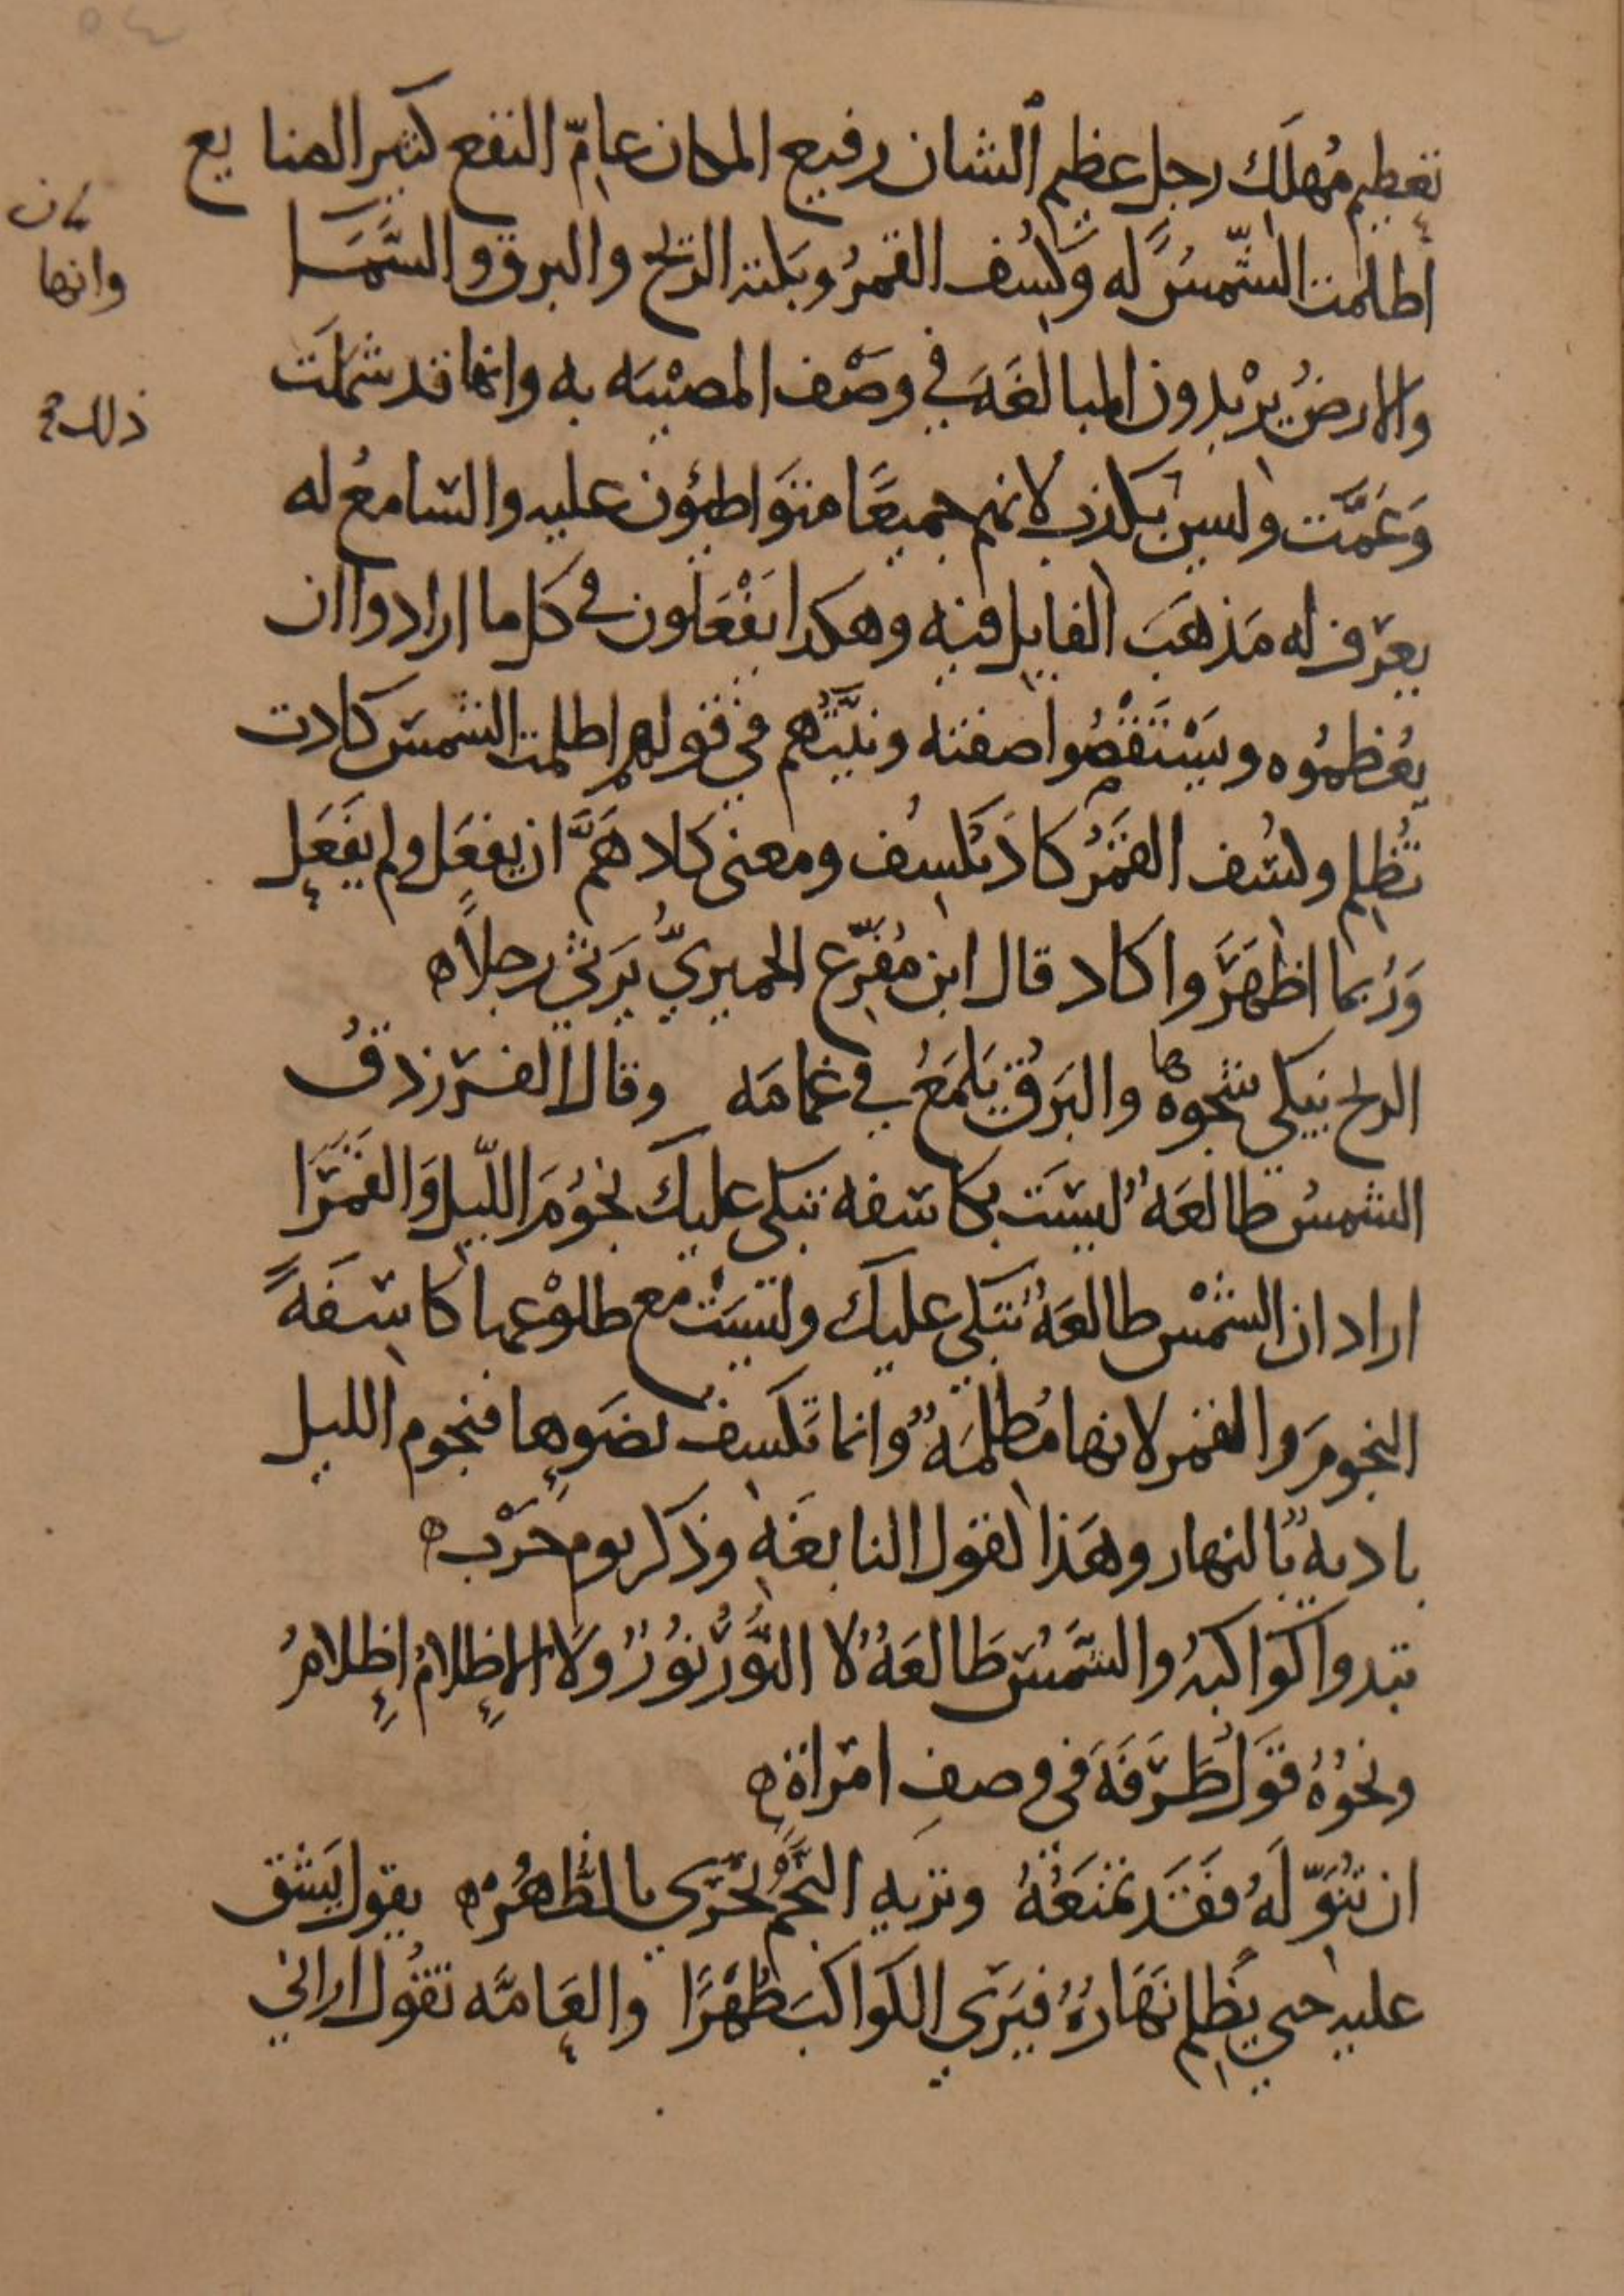 تعظيم مُهلَك رجل عظيم الشان رفيع المكان عامّ النفع كثير الصنايع
اظلمت الشّمسُ له وكسُف القمرُ وبكته الريح والبرق والسَّمَا
والارضُ يرْيدون المبالغَة في وصْف المصيْبَه به وانها قد شملَت
وَعَمَّت وليس بكذب لانهم جميعًا متوَاطئون عليه والسامعُ له
يعرف له مَذهَبَ القايل فيه وهكذا يَفْعَلون في كل ما ارادوا ان
يُعَظموُه ويَسْتَقْصُوا صفته ونيَّتُهم في قولهم اظلمت الشمس كادت
تُظلِم وكسُف القمَرُ كادَ يَكسِف ومعنى كاد هَمَّ ان يفعَل ولم يفعَل
وَرُبما اظهَرُوا كاد قال ابن مُفَرّغ الحميريُّ يَرثي رجلاً ه
الريح تبكي شجوهُ ها والبَرقُ يَلمَعُ في غمامَه وقال الفرزدقُ
الشمسُ طالعَةٌ ليسَت بكاسفه تبكي عليك نجُومَ اللّيل وَالقمَرَا
اراد ان الشمْس طالعَةٌ تبَكي عليك وليَسَتْ مع طلوْعها كاسفَةً
النجومَ والقمر لانها مُظلمَةٌ وانما تَكسِف بضَوءِها فنجوم الليل
باديه بالنهار وهَذا كقول النابغَةِ وذكر يوم حَرْب ه
تبدوا كوَاكبُه والشَّمسُ طَالعَةٌ لا النُّورُ نوُرٌ وَلا الاِظلامُ اِظلامُ
ونحوُهُ قوَل طَرَفَةَ في وصفِ امراة ه
ان تُنَوِّلهُ فقَد تمنَعُهُ وتريهِ النَّجْمَ يَجْري بالظُّهُرْ ه يقول يَشق
عليه حتي يُظلِم نَهَارُهُ فيَرَي الكَوَاكبَ ظُهْرًا والعَامَّه تقُول اراني
وانها
ذلك